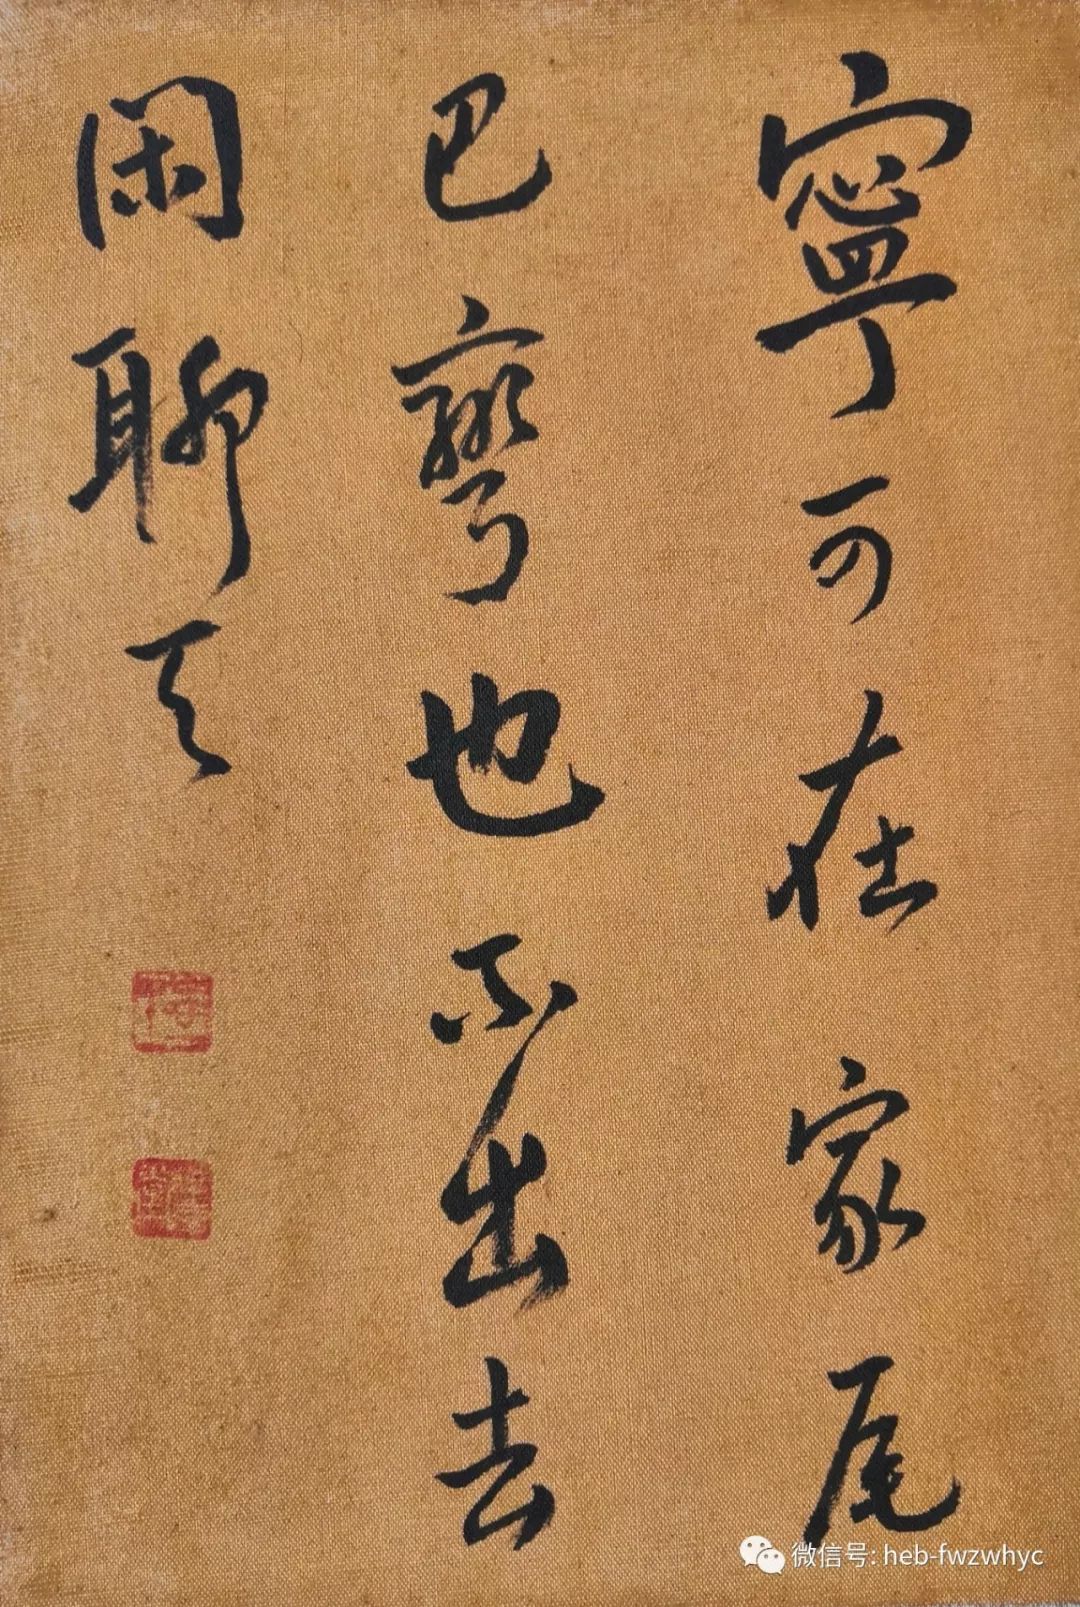 寧可在家尾
巴彎也不出去
閑聊天
微信号: heb-fwzwhyc